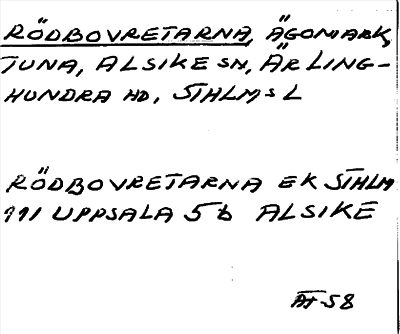 RÖDBOVRETARNA, ÄGOMARK,
TUNA, ALSIKE SN, ÄRLING-
HUNDRA HD, STHLMS L
RÖDBOVRETARNA EK STHLM
991 UPPSALA 5b ALSIKE
AT-58